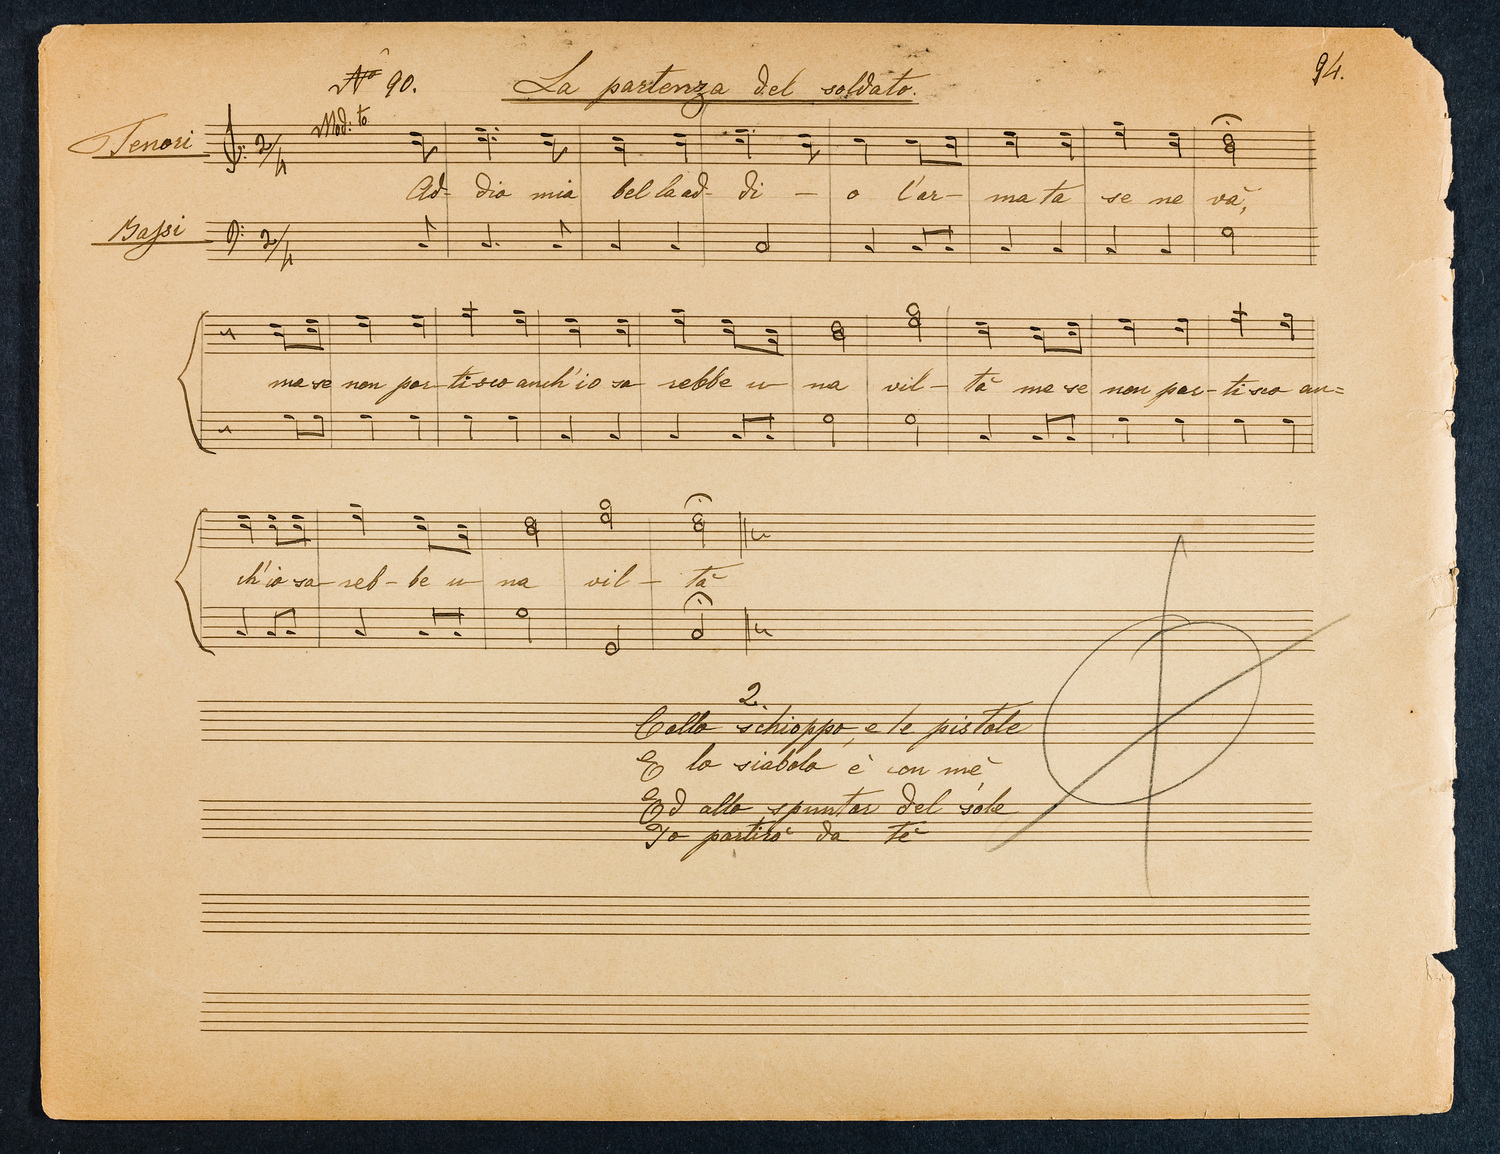 No 90. La partenza del soldato. 94.
Mod: to
Tenori 2/4
Ad- dio mia bel la ad- di - o l'ar- ma ta se ne và,
Bassi 2/4
ma se non par- ti sco anch'io sa rebbe u- na vil- tà ma se non par- ti sco an=
ch'io sa- reb- be u- na vil- tà
2.
Collo schioppo, e le pistole
E lo siabolo è con mè
Ed allo spuntar del sole
Io partirò da tè